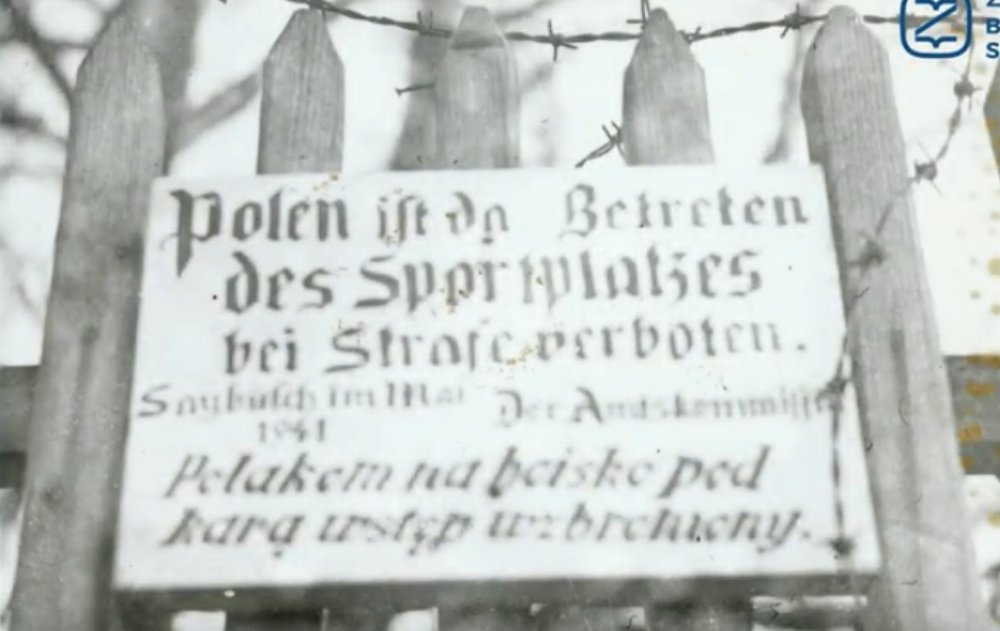 Polen ist da Betreten
des Sportplatzes
bei Strafe verboten.
Saybusch im Mai Der Amtskommiss
1941
Polakom na boisko pod
karą wstęp wzbroniony.
Z
B
S